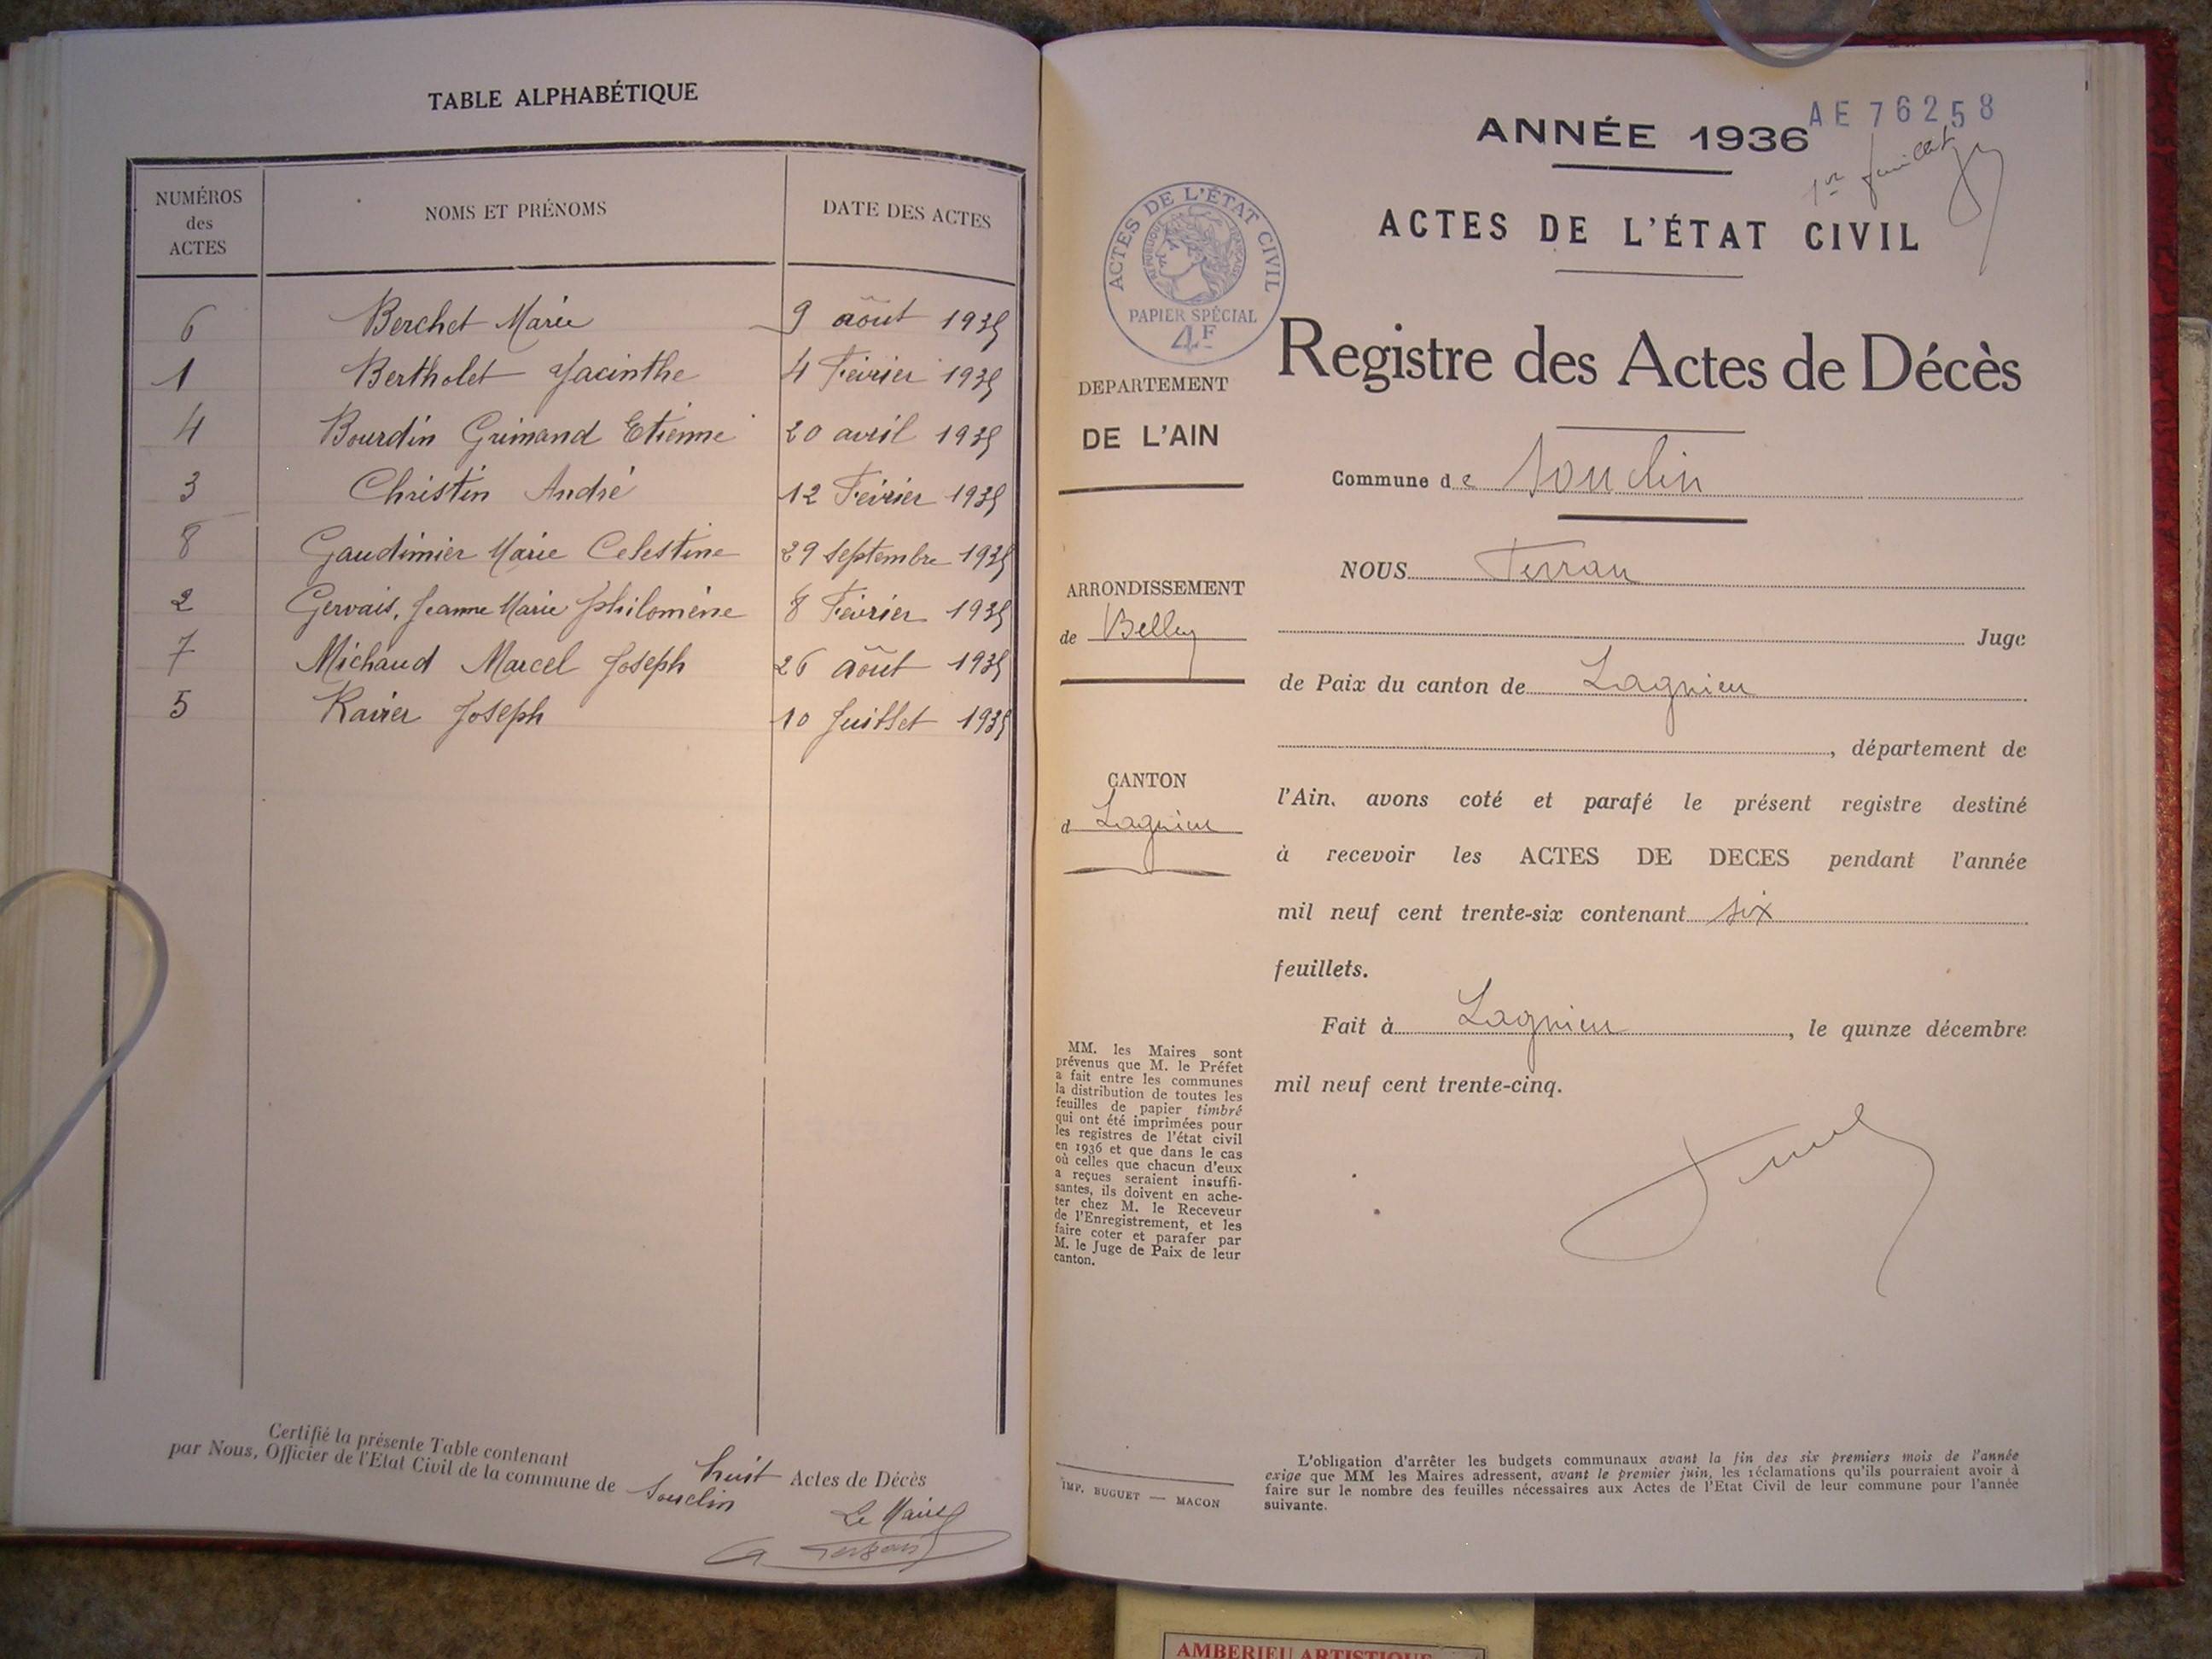 TABLE ALPHABÉTIQUE
NUMÉROS des ACTES NOMS ET PRÉNOMS DATE DES ACTES
6 Berchet Marie 9 août 1935
1 Bertholet Hyacinthe 4 Février 1935
4 Bourdin Grimand Etienne 20 avril 1935
3 Christin André 12 Février 1935
8 Gaudimier Marie Celestine 29 septembre 1935
2 Gervais, Jeanne Marie Philomène 8 Février 1935
7 Michaud Marcel Joseph 26 août 1935
5 Ravier Joseph 10 Juillet 1935
Certifié la présente Table contenant huit Actes de Décès
par Nous, Officier de l'Etat Civil de la commune de Souclin
Le Maire
AE 76258
ANNÉE 1936
1er feuillet
ACTES DE L'ÉTAT CIVIL
ACTES DE L'ÉTAT CIVIL
RÉPUBLIQUE FRANÇAISE
PAPIER SPÉCIAL
4F
Registre des Actes de Décès
DEPARTEMENT
DE L'AIN
Commune de Souclin
NOUS Ferran
ARRONDISSEMENT
de Belley
Juge
de Paix du canton de Lagnieu
, département de
CANTON
d Lagnieu
l'Ain, avons coté et parafé le présent registre destiné
à recevoir les ACTES DE DECES pendant l'année
mil neuf cent trente-six contenant six
feuillets.
Fait à Lagnieu, le quinze décembre
mil neuf cent trente-cinq.
MM. les Maires sont
prévenus que M. le Préfet
a fait entre les communes
la distribution de toutes les
feuilles de papier timbré
qui ont été imprimées pour
les registres de l'état civil
en 1936 et que dans le cas
où celles que chacun d'eux
a reçues seraient insuffi-
santes, ils doivent en ache-
ter chez M. le Receveur
de l'Enregistrement, et les
faire coter et parafer par
M. le Juge de Paix de leur
canton.
IMP. BUGUET — MACON
L'obligation d'arrêter les budgets communaux avant la fin des six premiers mois de l'année
exige que MM les Maires adressent, avant le premier juin, les réclamations qu'ils pourraient avoir à
faire sur le nombre des feuilles nécessaires aux Actes de l'Etat Civil de leur commune pour l'année
suivante.
AMBERIEU ARTISTIQUE